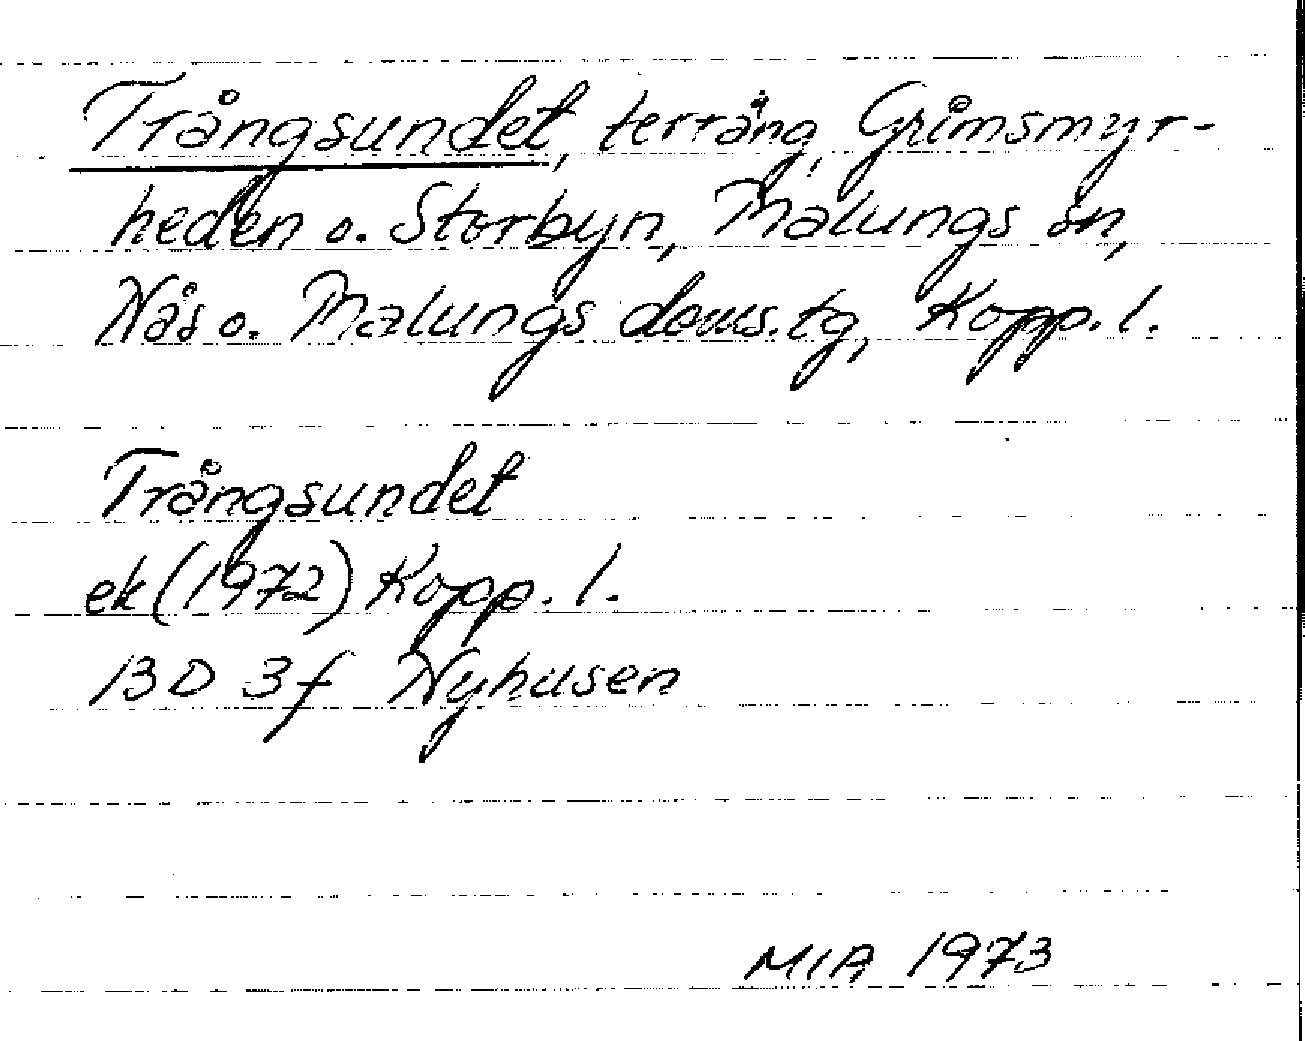 Trångsundet, terräng, Grimsmyr-
heden o. Storbyn, Malungs sn,
Nås o. Malungs doms.tg, Kopp. l.
Trångsundet
ek (1972) Kopp. l.
13 D 3f Nyhusen
MIA 1973